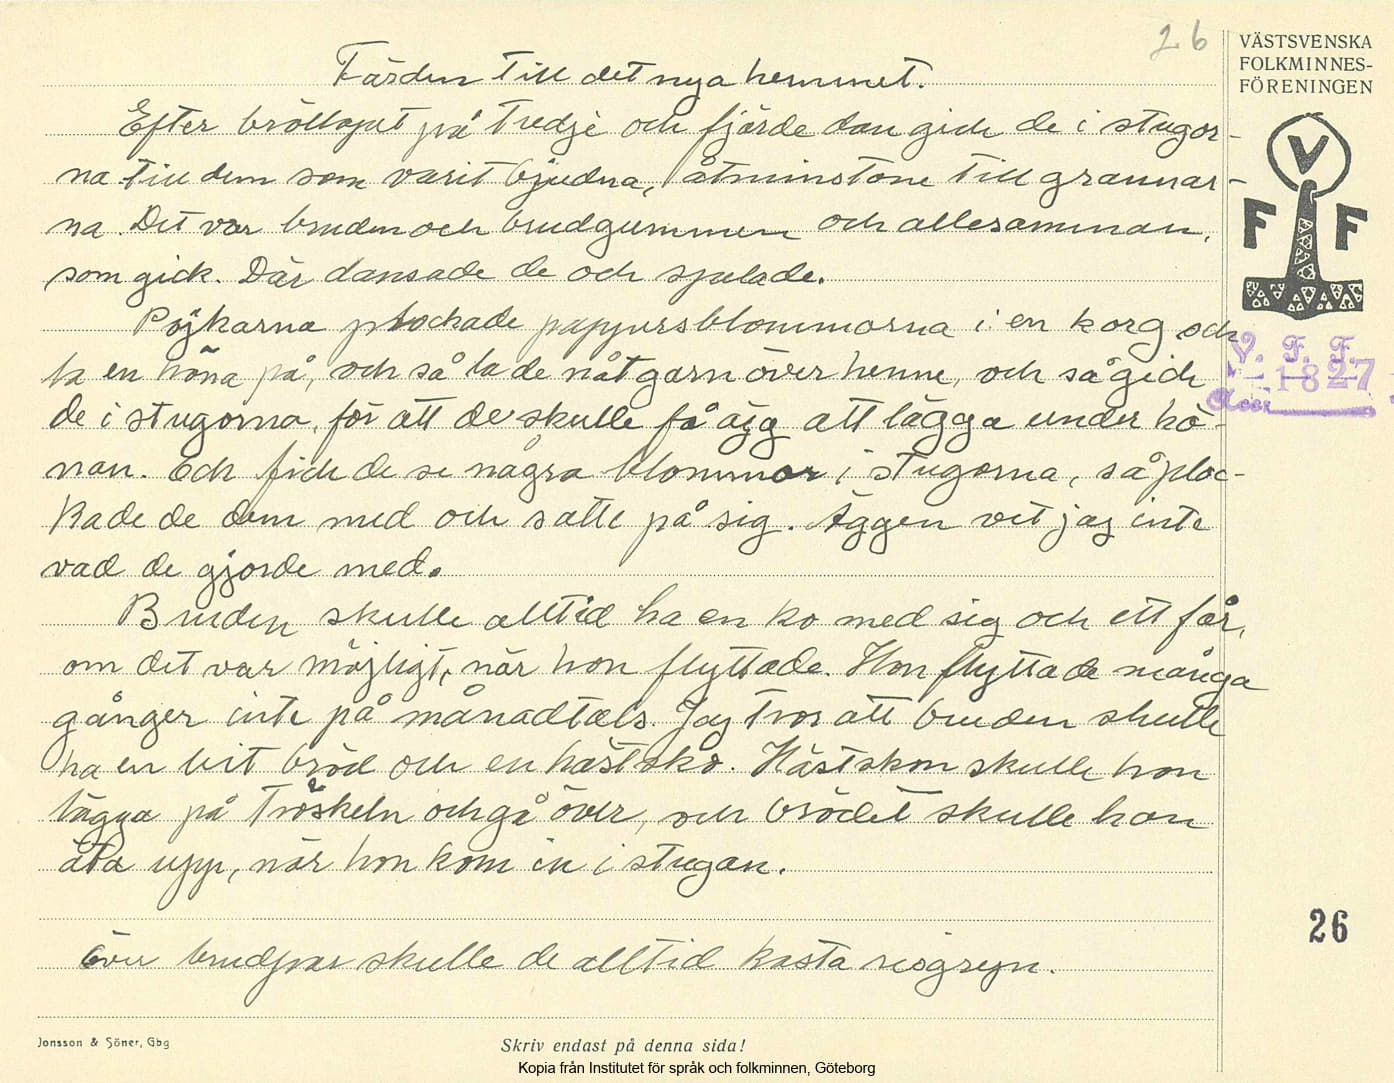 26
VÄSTSVENSKA
FOLKMINNES-
FÖRENINGEN
V
F F
V. F. F.
1827
Acc.
Färden till det nya hemmet.
Efter bröllopet på tredje och fjärde dan gick de i stugor-
na till dem som varit bjudna, åtminstone till grannar-
na. Det var bruden och brudgummen och allesamman,
som gick. Där dansade de och spelade.
Pojkarna plockade pappersblommorna i en korg och
la en höna på, och så la de nåt garn över henne, och så gick
de i stugorna, för att de skulle få ägg att lägga under hö-
nan. Och fick de se några blommor i stugorna, så ploc-
kade de dem med och satte på sig. Äggen vet jag inte
vad de gjorde med.
Bruden skulle alltid ha en ko med sig och ett får,
om det var möjligt, när hon flyttade. Hon flyttade många
gånger inte på månadtals. Jag tror att bruden skulle
ha en bit bröd och en hästsko. Hästskon skulle hon
lägga på tröskeln och gå över, och brödet skulle hon
äta upp, när hon kom in i stugan.
Över brudpar skulle de alltid kasta risgryn.
26
Jonsson & Söner, Gbg
Skriv endast på denna sida!
Kopia från Institutet för språk och folkminnen, Göteborg